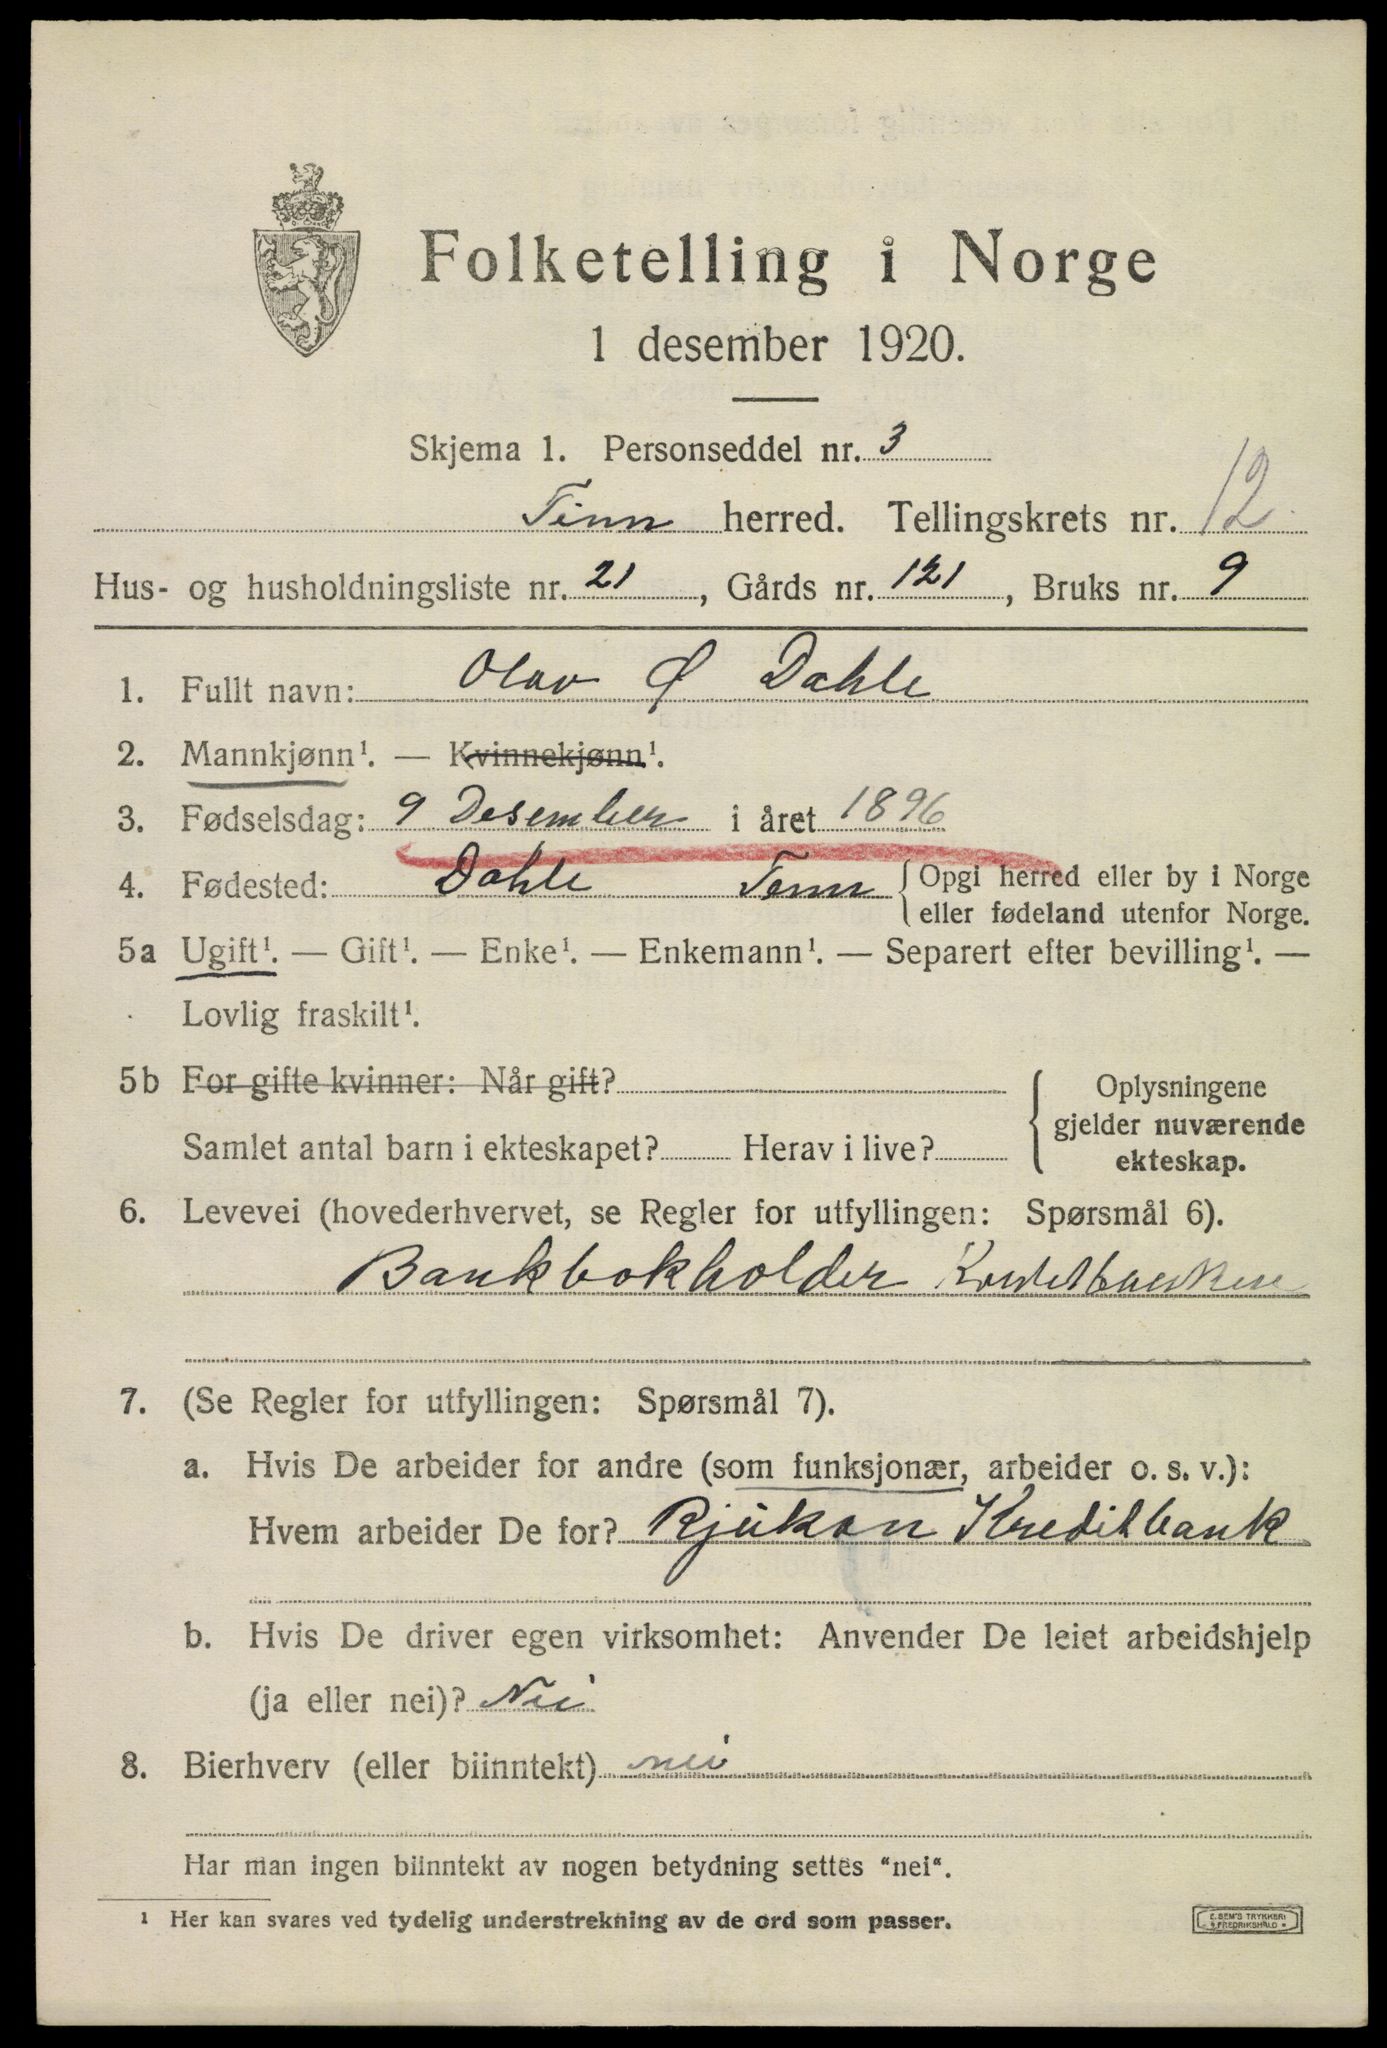 Folketelling i Norge
1 desember 1920.
Skjema 1. Personseddel nr. 3
Tinn herred. Tellingskrets nr. 12
Hus- og husholdningsliste nr. 21, Gårds nr. 121, Bruks nr. 9
1. Fullt navn: Olav Ø Dahle
2. Mannkjønn¹. — Kvinnekjønn¹.
3. Fødselsdag: 9 Desember i året 1896
4. Fødested: Dahle Tinn { Opgi herred eller by i Norge
eller fødeland utenfor Norge.
5a Ugift¹. — Gift¹. — Enke¹. — Enkemann¹. — Separert efter bevilling¹. —
Lovlig fraskilt¹.
5b For gifte kvinner: Når gift?
Samlet antal barn i ekteskapet? Herav i live?
Oplysningene
gjelder nuværende
ekteskap.
6. Levevei (hovederhvervet, se Regler for utfyllingen: Spørsmål 6).
Bankbokholder
7. (Se Regler for utfyllingen: Spørsmål 7).
a. Hvis De arbeider for andre (som funksjonær, arbeider o. s. v.):
Hvem arbeider De for? Rjukan Kreditbank
b. Hvis De driver egen virksomhet: Anvender De leiet arbeidshjelp
(ja eller nei)? Nei
8. Bierhverv (eller biinntekt) nei
Har man ingen biinntekt av nogen betydning settes "nei".
¹ Her kan svares ved tydelig understrekning av de ord som passer.
E. SEM'S TRYKKERI
FREDRIKSHALD